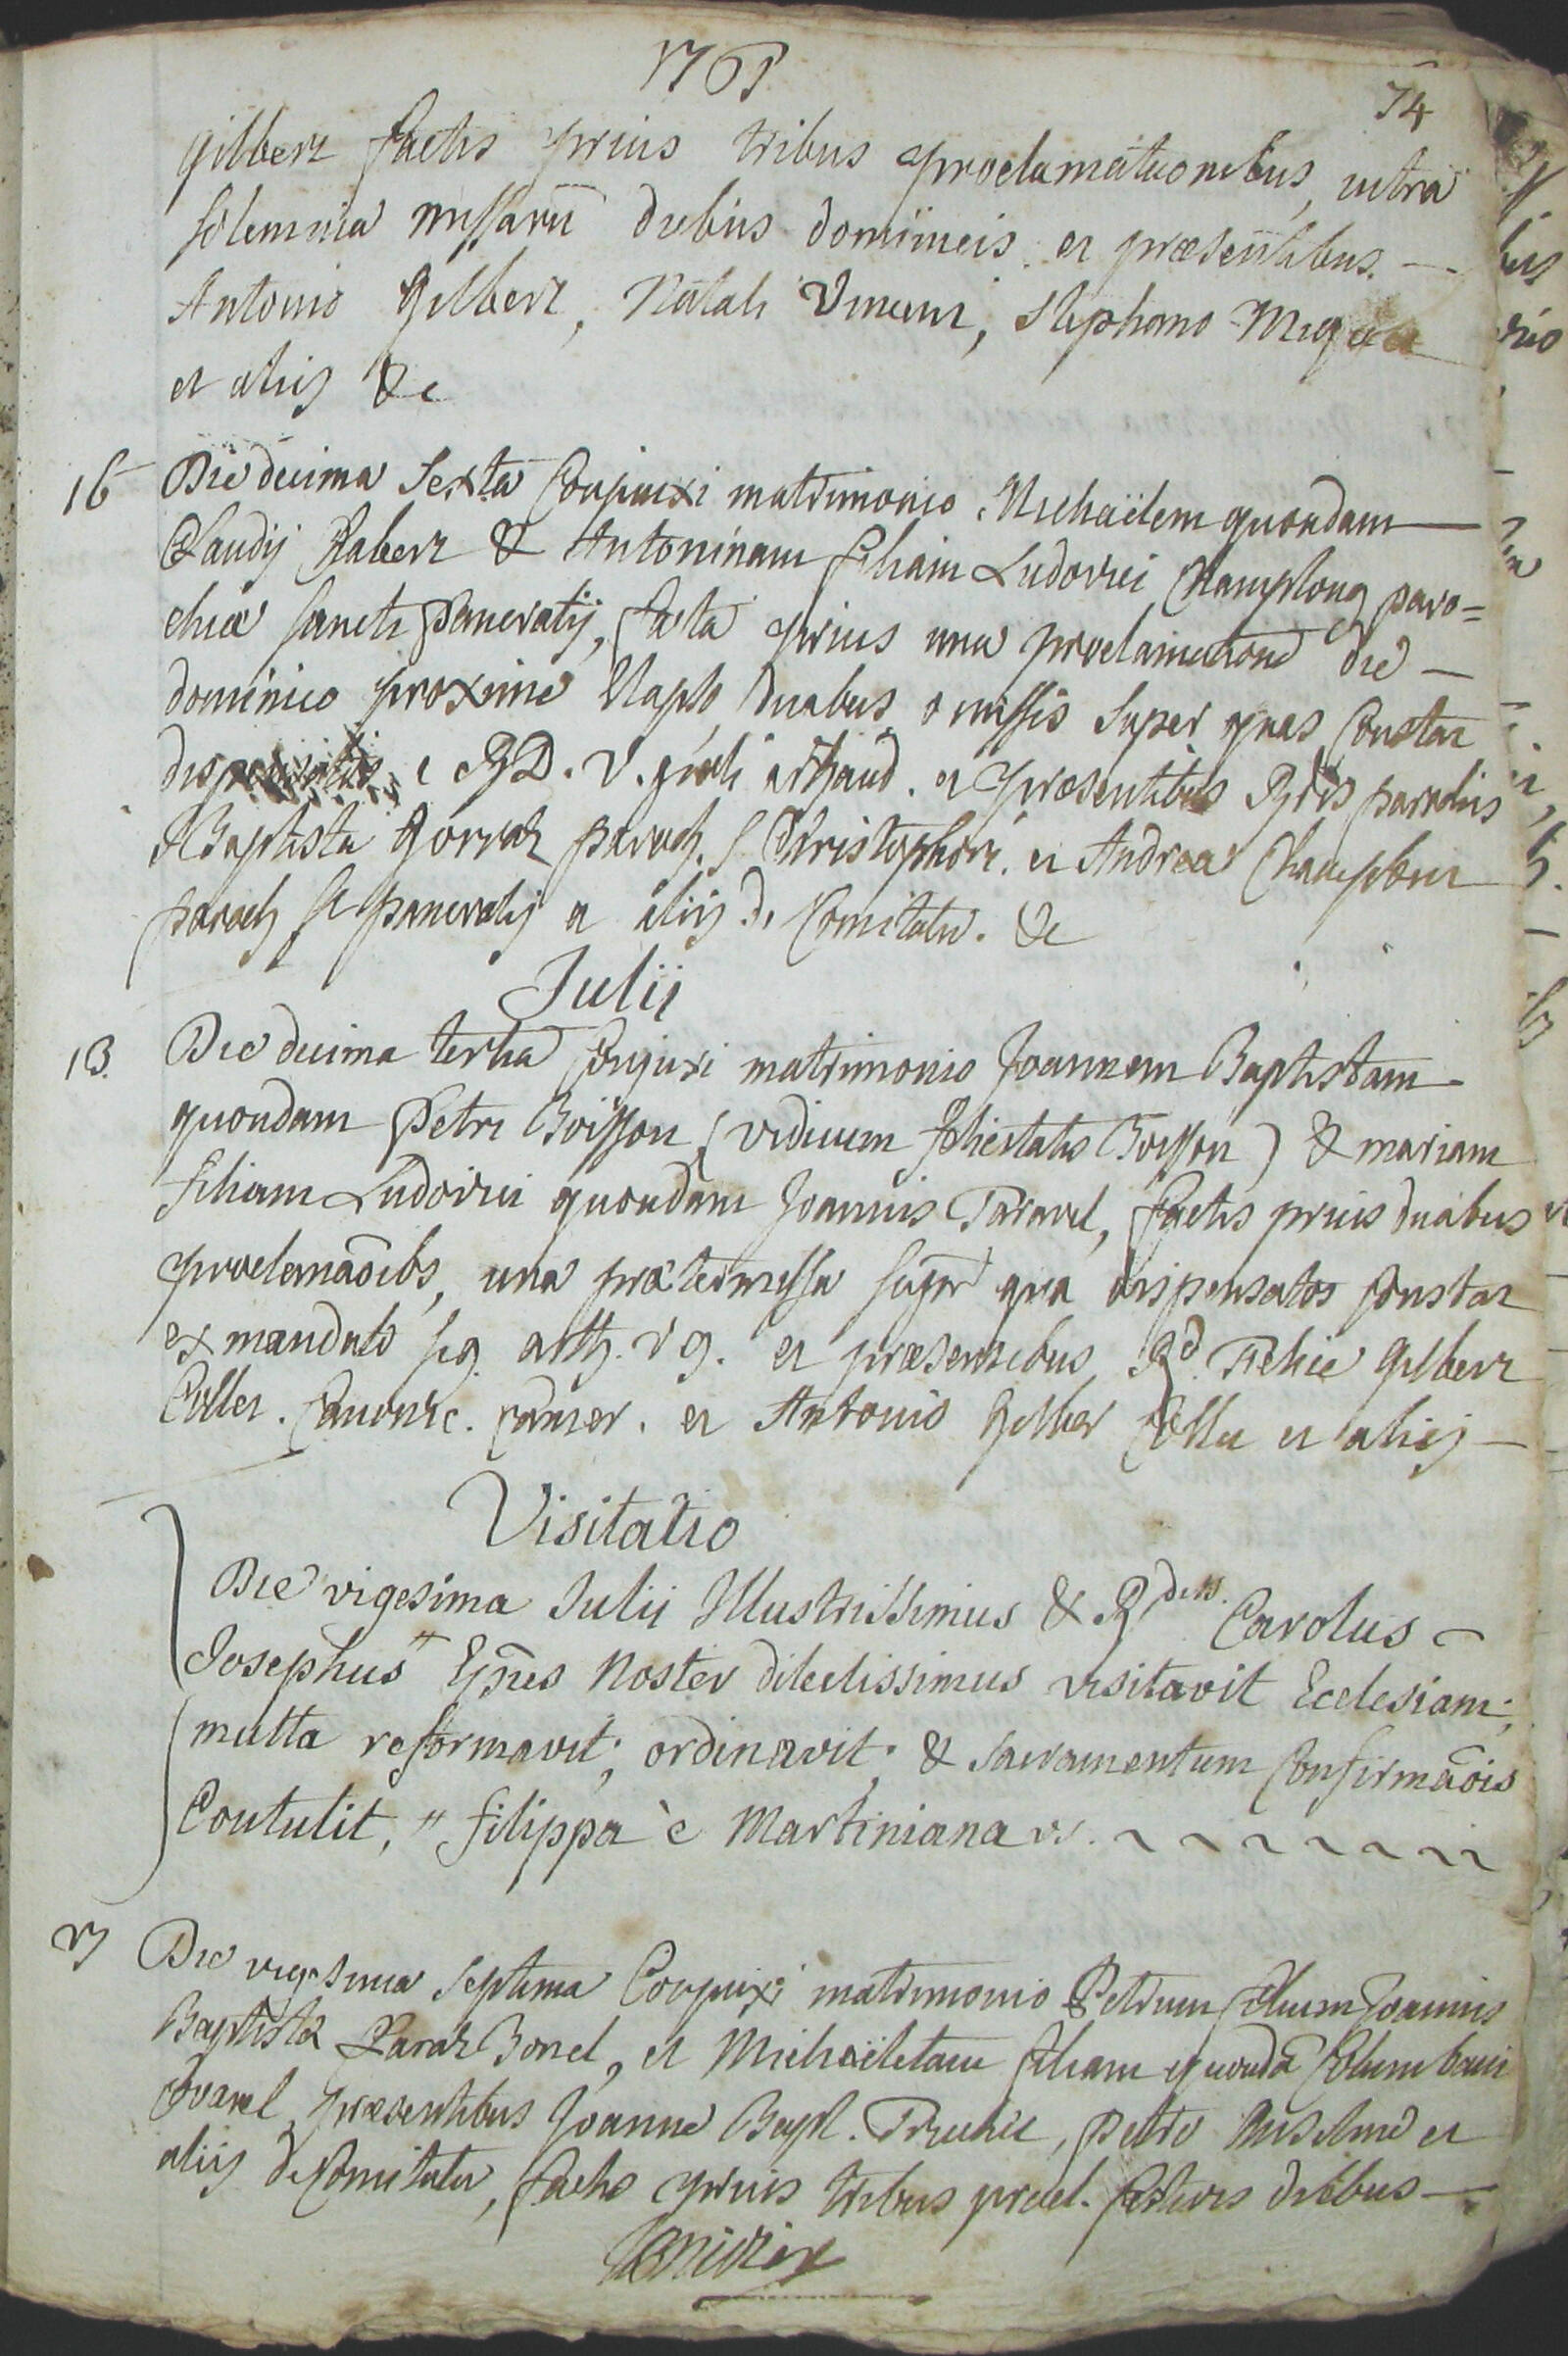 74
Gilbert factis prius tribus proclamationibus, intra
solemnia missarū diebus dominicis et præsentibus. —
Antonio Gilbert, Natali Vincent, Stephano
et alijs &c
16 Die decima Sexta Conjunxi matrimonio Michaëlem quondam —
Claudij Jabert & Antoninam filiam Ludovici Champlong paro=
chiæ Sancti Pancratij, facta prius una proclamatione die —
dominico proxime elapso, duabus omissis super quas Constat
a R.D. V. gñali arthaud. et præsentibus parochis
Baptista Gorrat paroch. S. Christophori. et Andrea
paroch S. Pancratij et alijs de Comitatu. &c
Julii
13. Die decima tertia Conjuxi matrimonio Joannem Baptistam
quondam Petri Boisson (viduum felicitatis Boisson) & mariam
filiam Ludovici quondam Joannis Taravel, factis prius duabus
proclamaōibs, una prætermissa super qua dispensatos Constat
ex mandato sig. arth. v g. et præsentibus Rd. Felice Gilbert
Coller. Canonic. et Antonio Gilbert et alijs —
Visitatio
Die vigesima Julii Illustrissimus & Rdiss. Carolus
Josephus" Epũs Noster dilectissimus visitavit Ecclesiam;
multa reformavit; ordinavit; & sacramentum Confirmaōis
Contulit, " filippa è Martiniana
27 Die vigesima septima Conjuxi matrimonio Petrum filium Joannis
Baptistæ Bonel, et Michaëletam filiam quondā Columbani
præsentibus Joanne Bapt. , Petro Anselme et
alijs de Comitatu, factis prius tribus procl. festivis diebus —